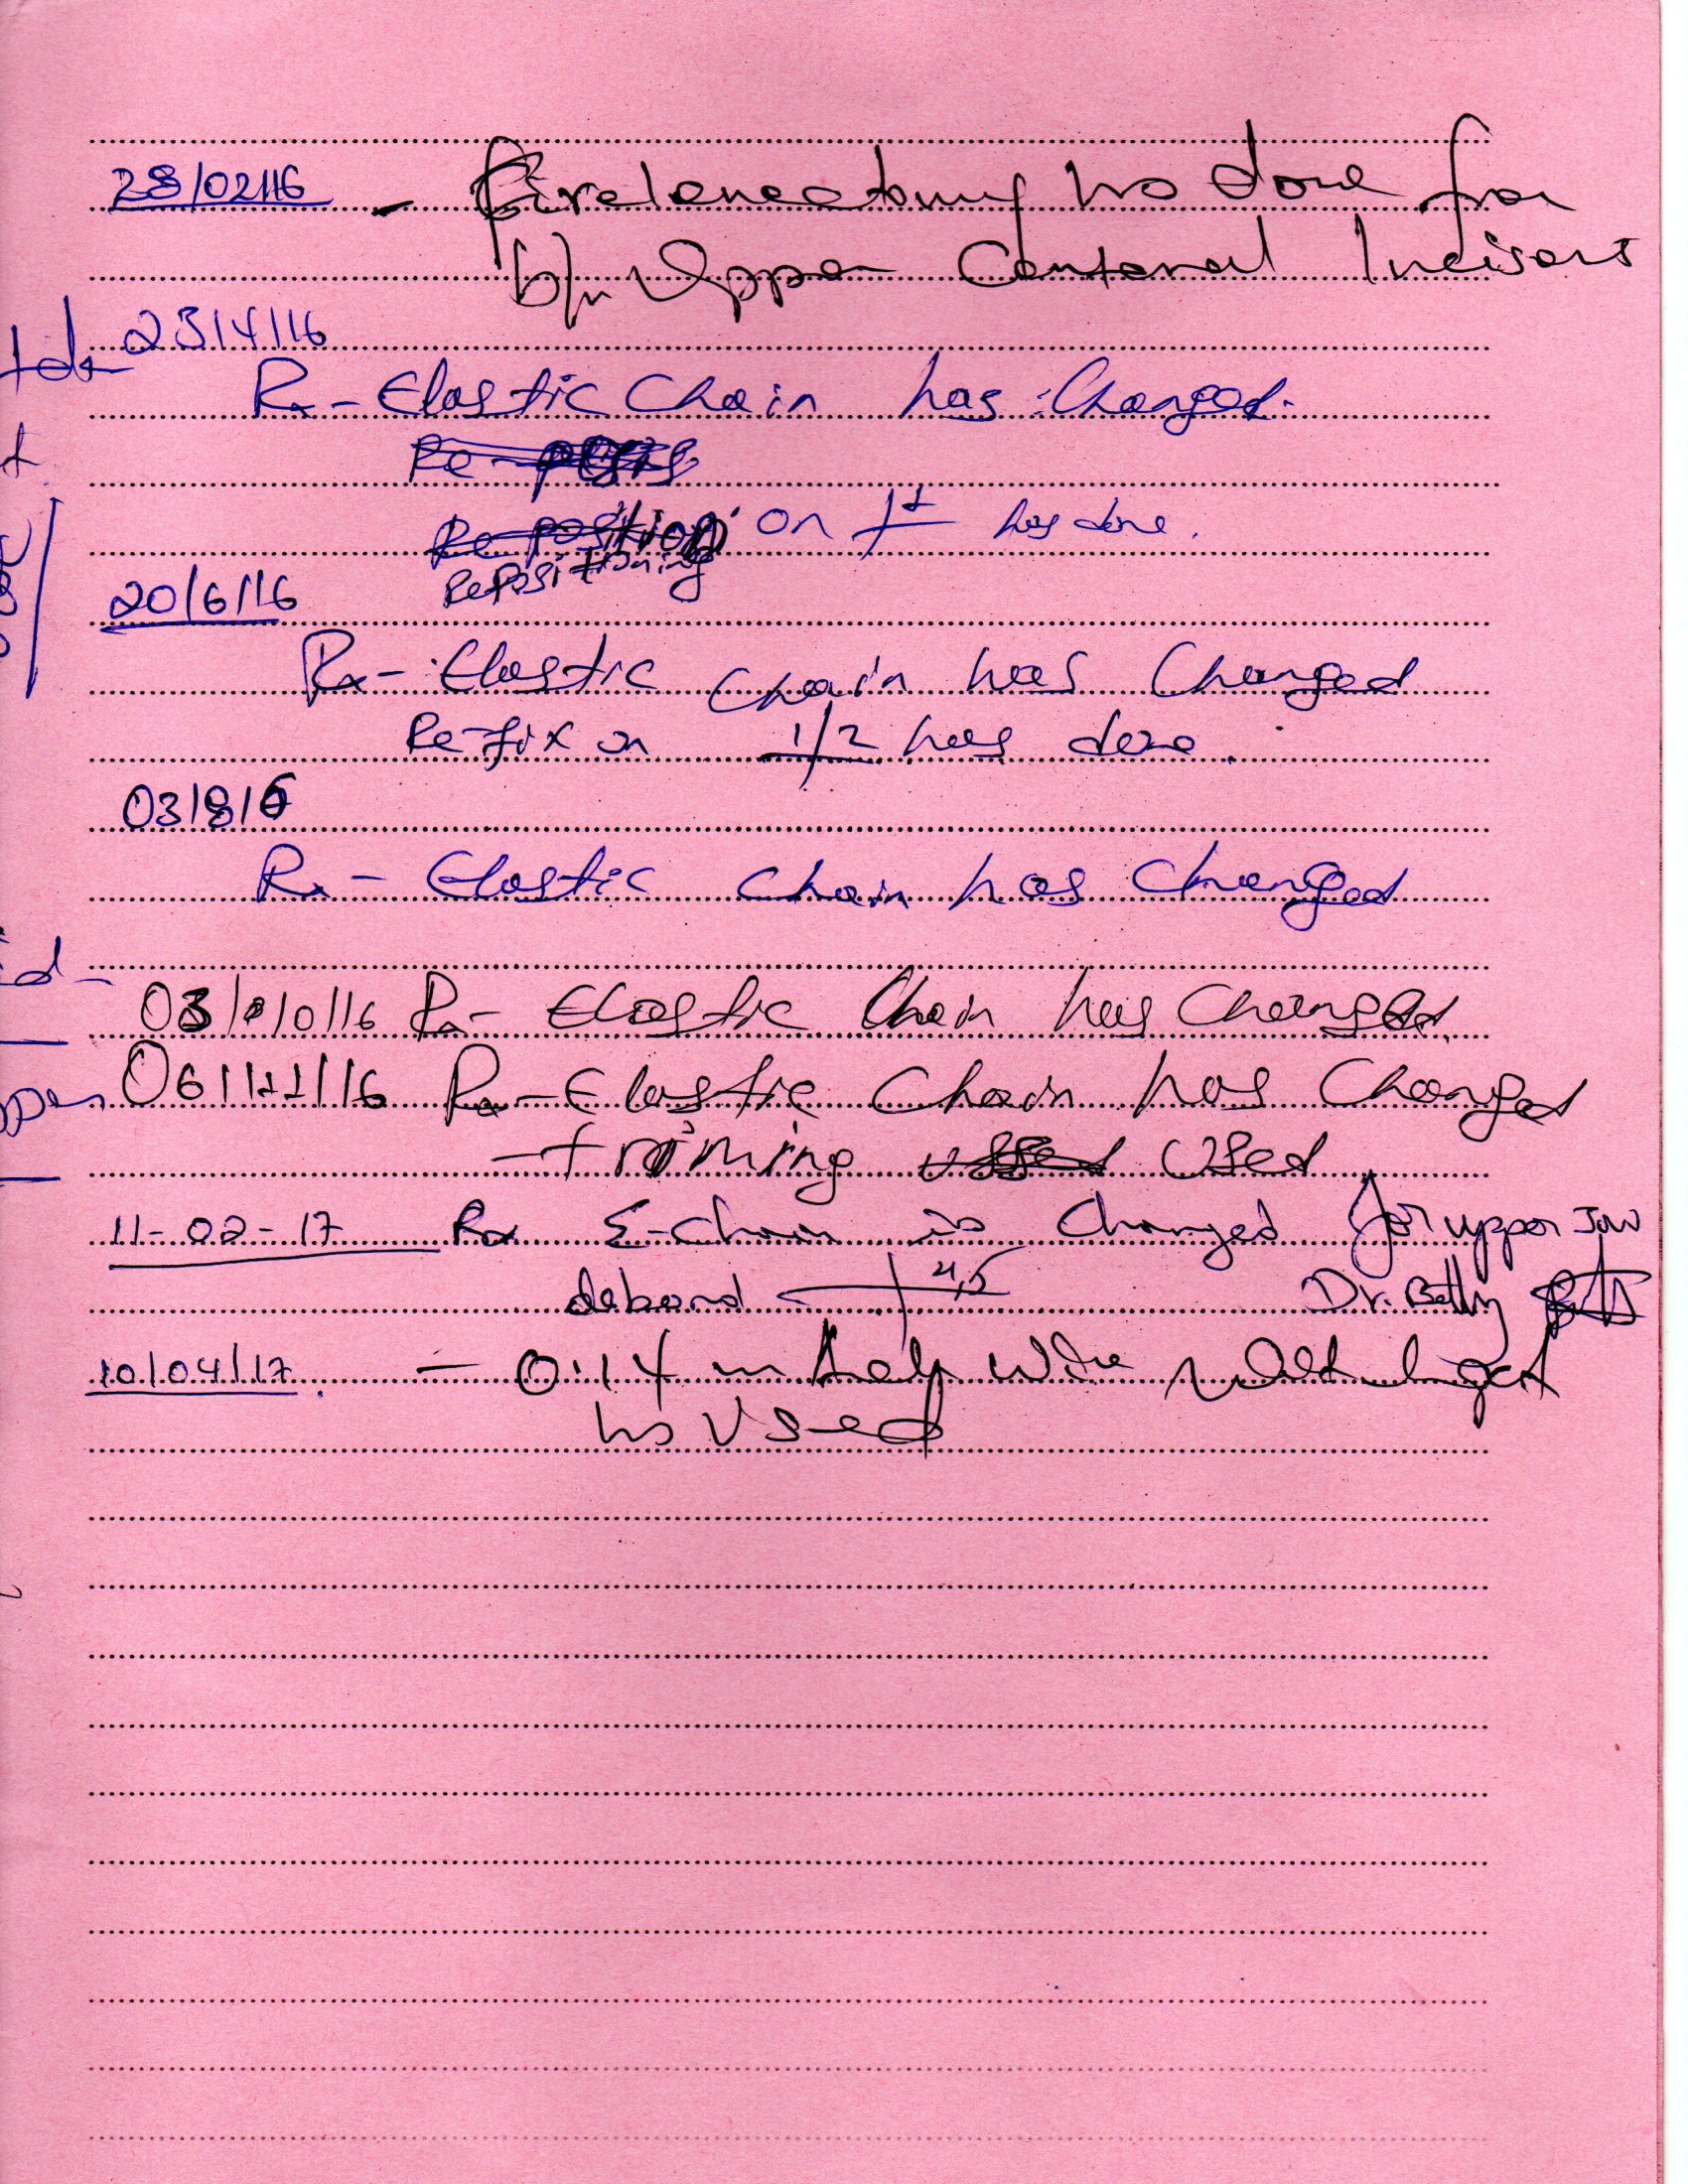 28/02/16 - has done for
b/n Upper Centeral Incisors
23/4/16
Rx - Elastic Chain has Changed.
Re-posis
Re-position on has done.
Repositioning
20/6/16
Rx - Elastic Chain has Changed
Re-fix on 1/2 has done
03/8/6
Rx - Elastic Chain has Changed
03/10/16 Rx - Elastic Chain has Changed
06/11/16 Rx - Elastic Chain has Changed
- triming used Used
11-02-17 Rx E-chain is Changed for upper Jaw
debond 4,5 Dr. Betty
10/04/17 - 0.14 wire
has Used